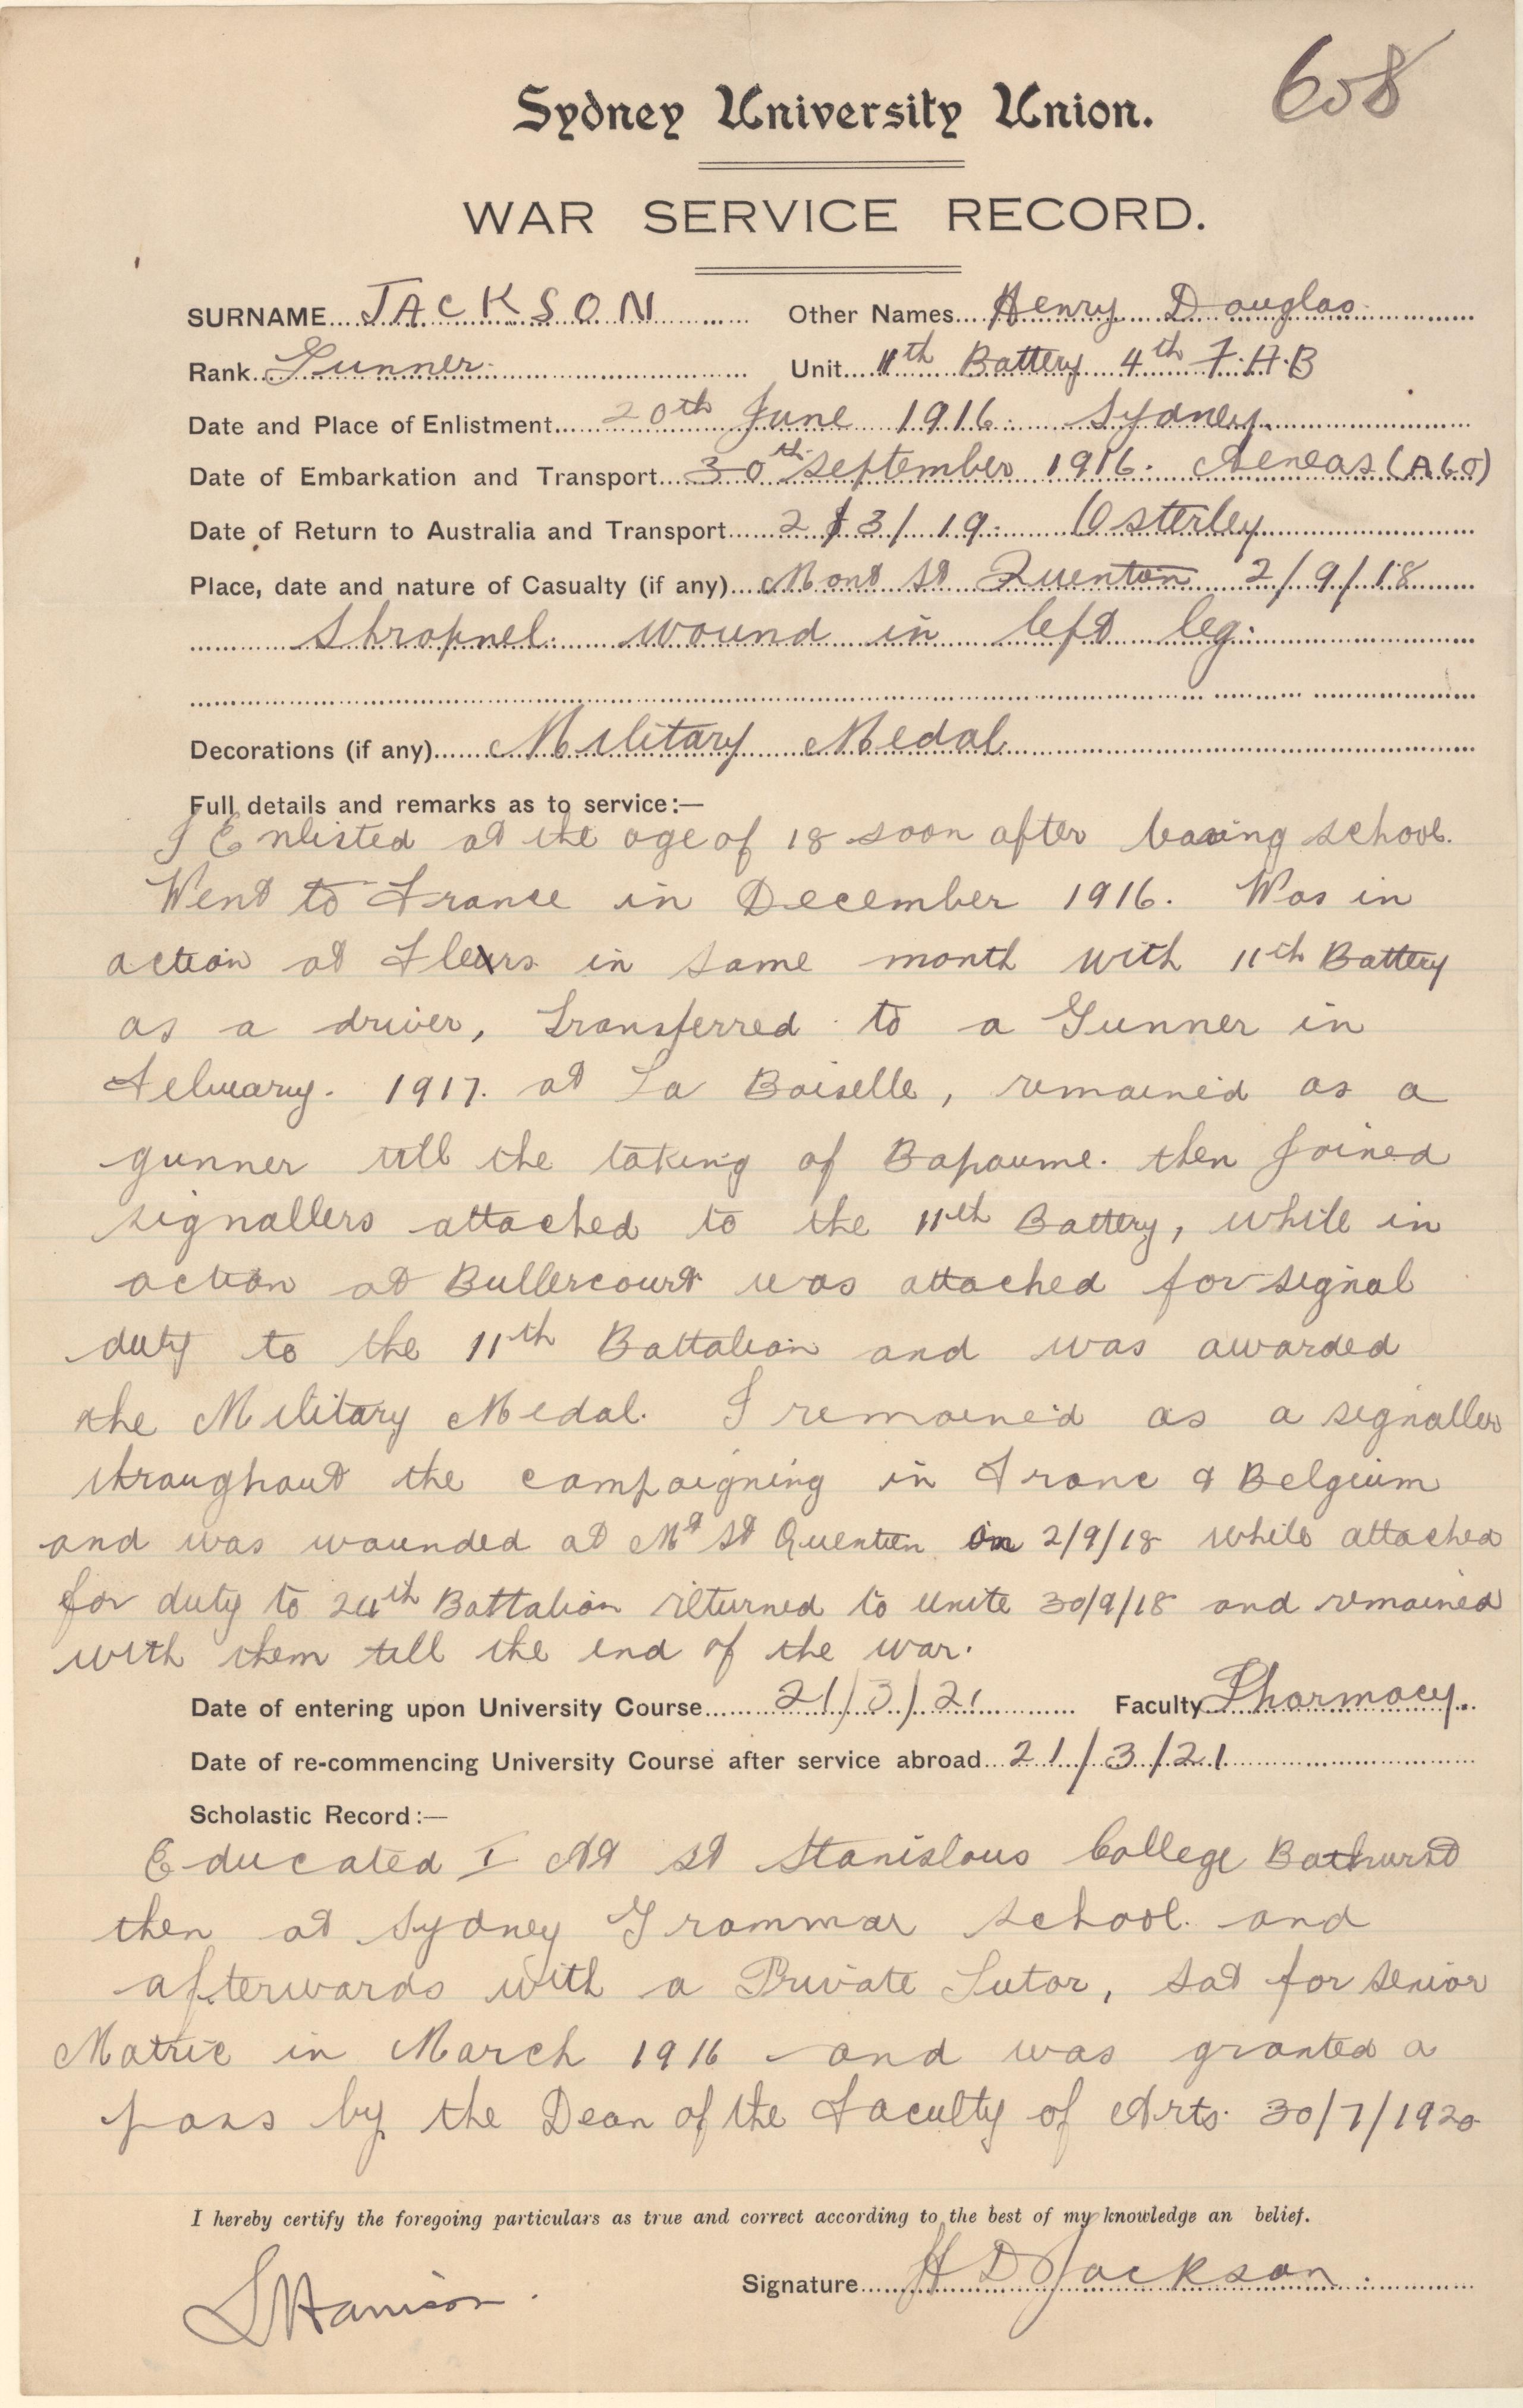 608
Sydney University Union.
WAR SERVICE RECORD.
SURNAME JACKSON Other Names Henry Douglas
Rank Gunner Unit 11th Battery 4th F.A.B
Date and Place of Enlistment 20th June 1916. Sydney.
Date of Embarkation and Transport 30th September 1916. Aeneas (A60)
Date of Return to Australia and Transport 2/3/19. Osterley
Place, date and nature of Casualty (if any) Mont St Quenton 2/9/18
Shrapnel wound in left leg.
Decorations (if any) Military Medal
Full details and remarks as to service:—
I Enlisted at the age of 18 soon after leaving school.
Went to France in December 1916. Was in
action at Flers in same month with 11th Battery
as a driver, transferred to a Gunner in
February. 1917. at La Boiselle, remained as a
gunner till the taking of Bapaume. then joined
signallers attached to the 11th Battery, while in
action at Bullercourt was attached for signal
duty to the 11th Battalion and was awarded
the Military Medal. I remained as a signaller
throughout the campaigning in Franc & Belgium
and was wounded at Mt St Quentin on 2/9/18 while attached
for duty to 24th Battalion returned to unite 30/9/18 and remained
with them till the end of the war.
Date of entering upon University Course 21/3/21 Faculty Pharmacy.
Date of re-commencing University Course after service abroad 21/3/21
Scholastic Record:—
Educated I At St Stanislaus College Bathurst
then at Sydney Grammar School. and
afterwards with a Private Tutor, sat for senior
Matric in March 1916 and was granted a
pass by the Dean of the Faculty of Arts. 30/7/1920
I hereby certify the foregoing particulars as true and correct according to the best of my knowledge an belief.
Signature H D Jackson.